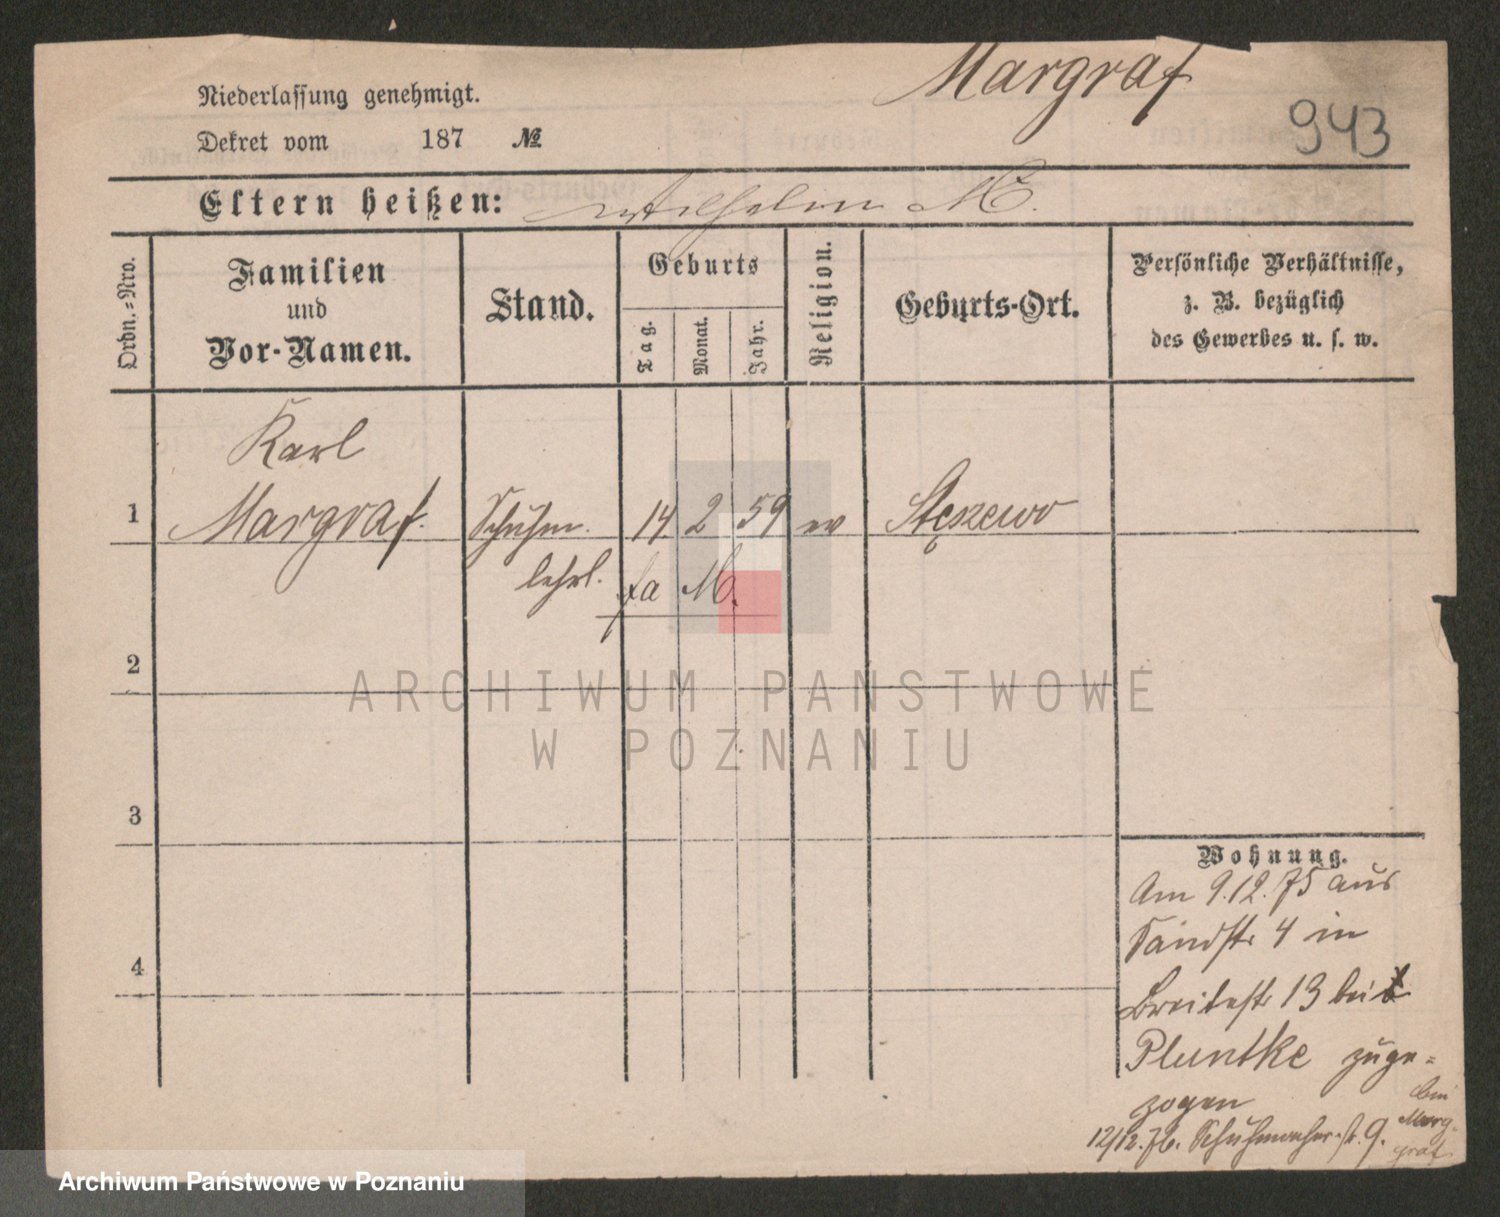 Margraf
943
Niederlassung genehmigt.
Dekret vom 187 №
Eltern heißen: Wilhelm M.
Ordn.-Nro.
Familien
und
Vor-Namen.
Stand.
Geburts
Tag.
Monat.
Jahr.
Religion.
Geburts-Ort.
Persönliche Verhältnisse,
z. B. bezüglich
des Gewerbes u. s. w.
Karl
1 Margraf. Schuhm. 14 2 59 ev Stęszewo
lehrl. fa M.
2
ARCHIWUM PAŃSTWOWE
W POZNANIU
3
4
Wohnung.
Am 9.12.75 aus
Sandstr 4 in
Breitestr 13 bei
Pluntke zuge=
zogen
12/12.76. Schuhmacher-str. 9. bei
Marg-
graf
Archiwum Państwowe w Poznaniu